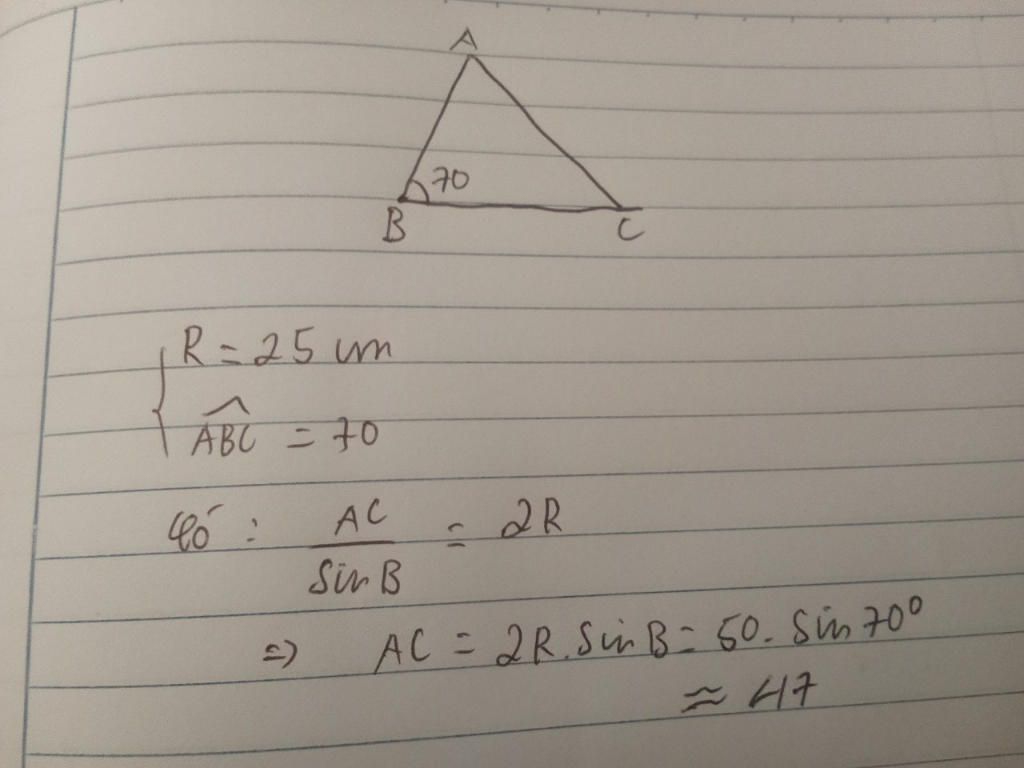 A
70
B C
R = 25 cm
ABC = 70
Có : AC / Sin B = 2R
=> AC = 2R.Sin B = 50. Sin 70°
≈ 47